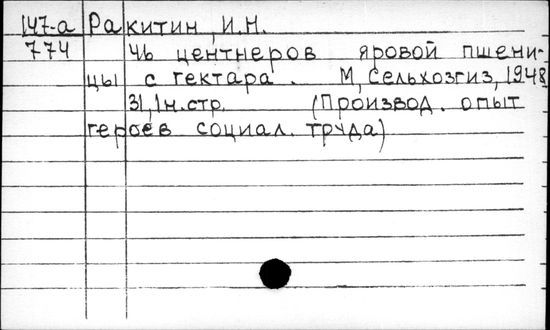 147-а Ракитин, И.Н.
774 46 центнеров яровой пшени-
цы с гектара. М, Сельхозгиз, 1948
31, 1н.стр. (Производ. опыт
героев социал. труда)